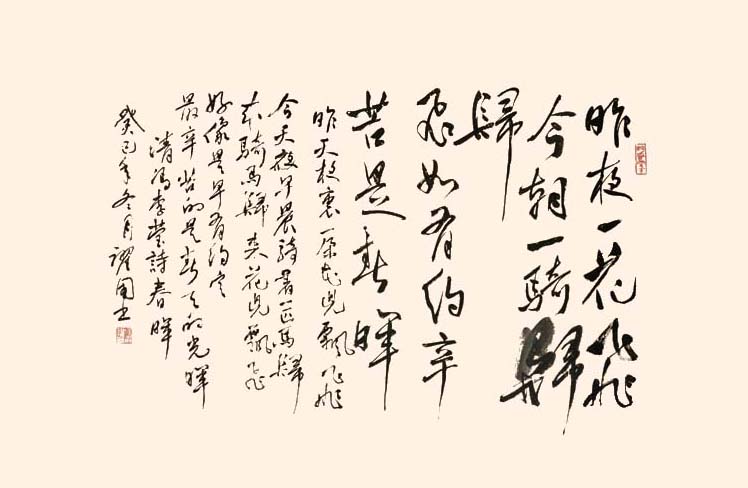 昨夜一花飛
今朝一騎歸
歸
飛如有約辛
苦是春暉
昨天夜裏一朵花兒飄飛
今天夜早晨騎著一匹馬歸
來騎馬歸來花兒飄飛
好像是早有約定
最辛苦的是春天的光暉
清馮李詩春暉
癸巳年冬月國書